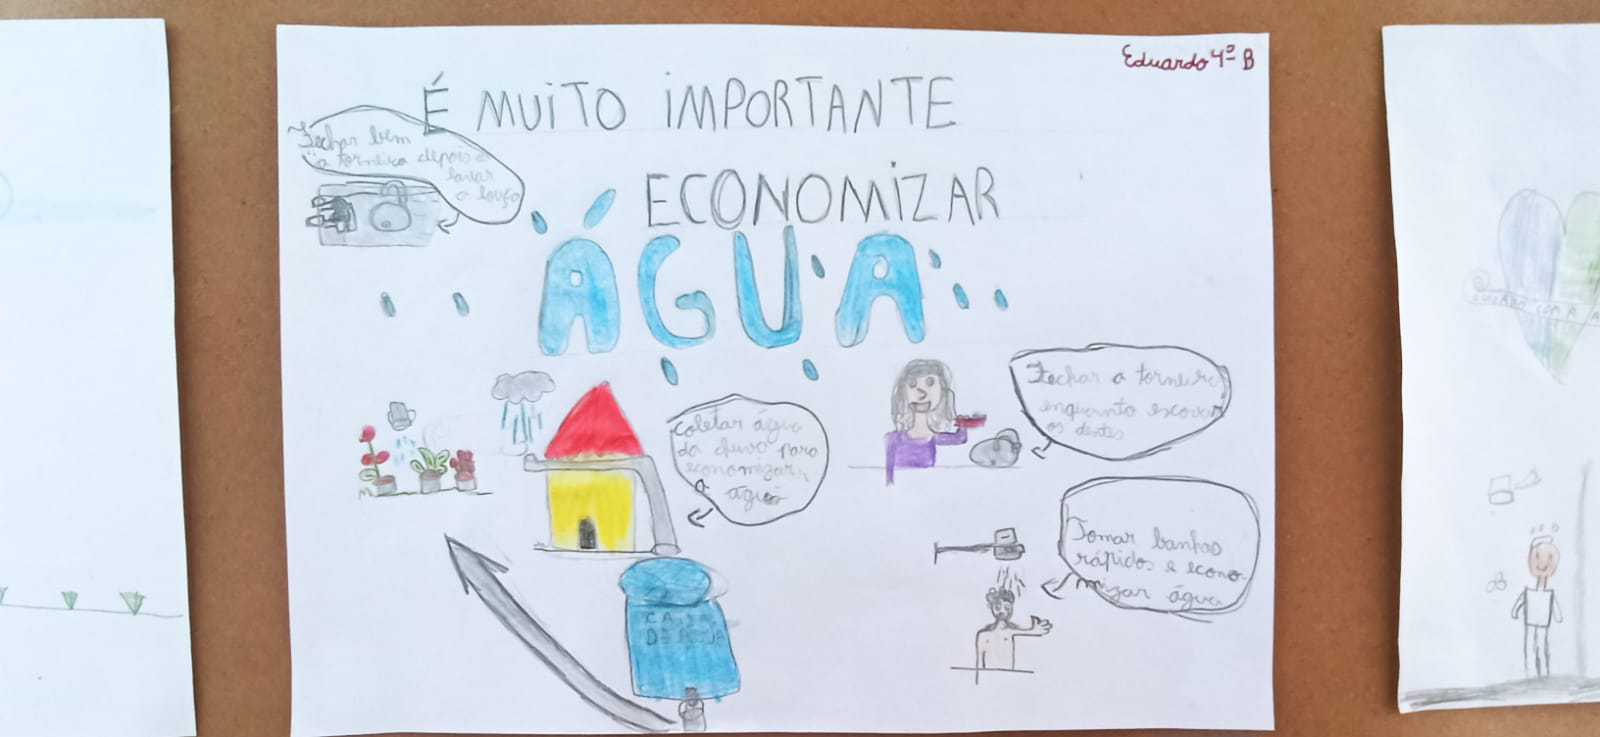 Eduardo 4º B
É MUITO IMPORTANTE
ECONOMIZAR
ÁGUA
Fechar bem
a torneira depois de
lavar
a louça
Fechar a torneira
enquanto escovar
os dentes
coletar água
da chuva para
economizar
a água
Tomar banhos
rápidos e econo-
mizar água
CAIXA
DE ÁGUA
COM A